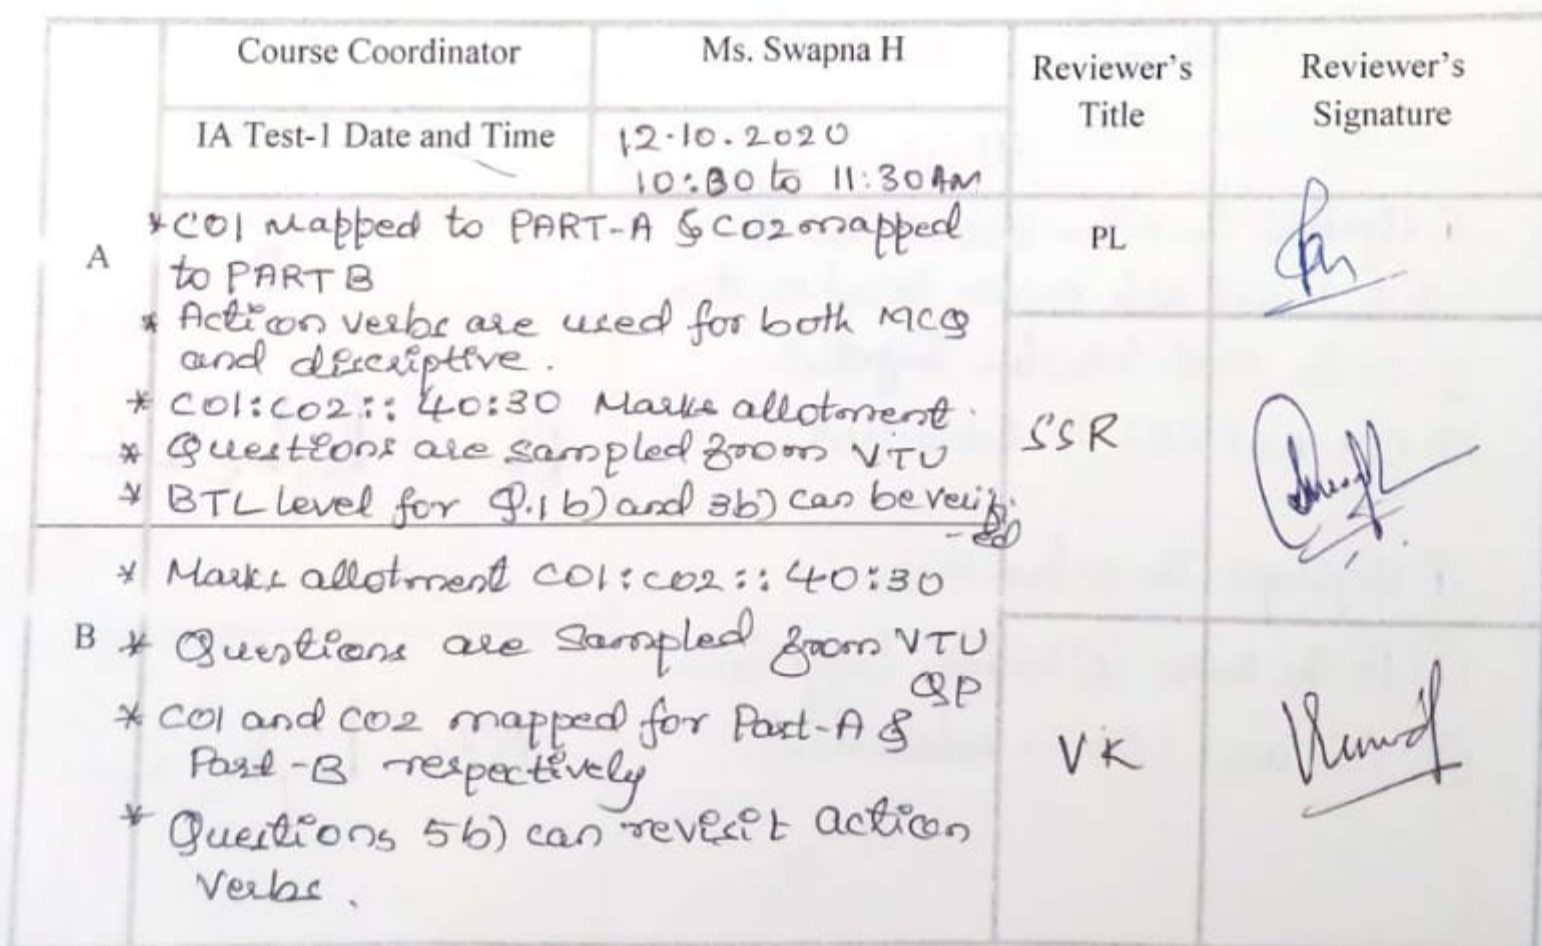 Course Coordinator
Ms. Swapna H
Reviewer's
Title
Reviewer's
Signature
IA Test-1 Date and Time
12.10.2020
10:30 to 11:30AM
A
*CO1 mapped to PART-A & CO2 mapped
to PART B
* Action verbs are used for both MCQ
and discriptive.
* CO1:CO2:: 40:30 Marks allotment.
* Questions are sampled from VTU
* BTL level for Q.1b) and 3b) can be verifi
-ed
PL
SSR
B
* Marks allotment CO1:CO2:: 40:30
* Questions are Sampled from VTU
QP
* CO1 and CO2 mapped for Part-A &
Part-B respectively
* Questions 5b) can revisit action
Verbs.
VK